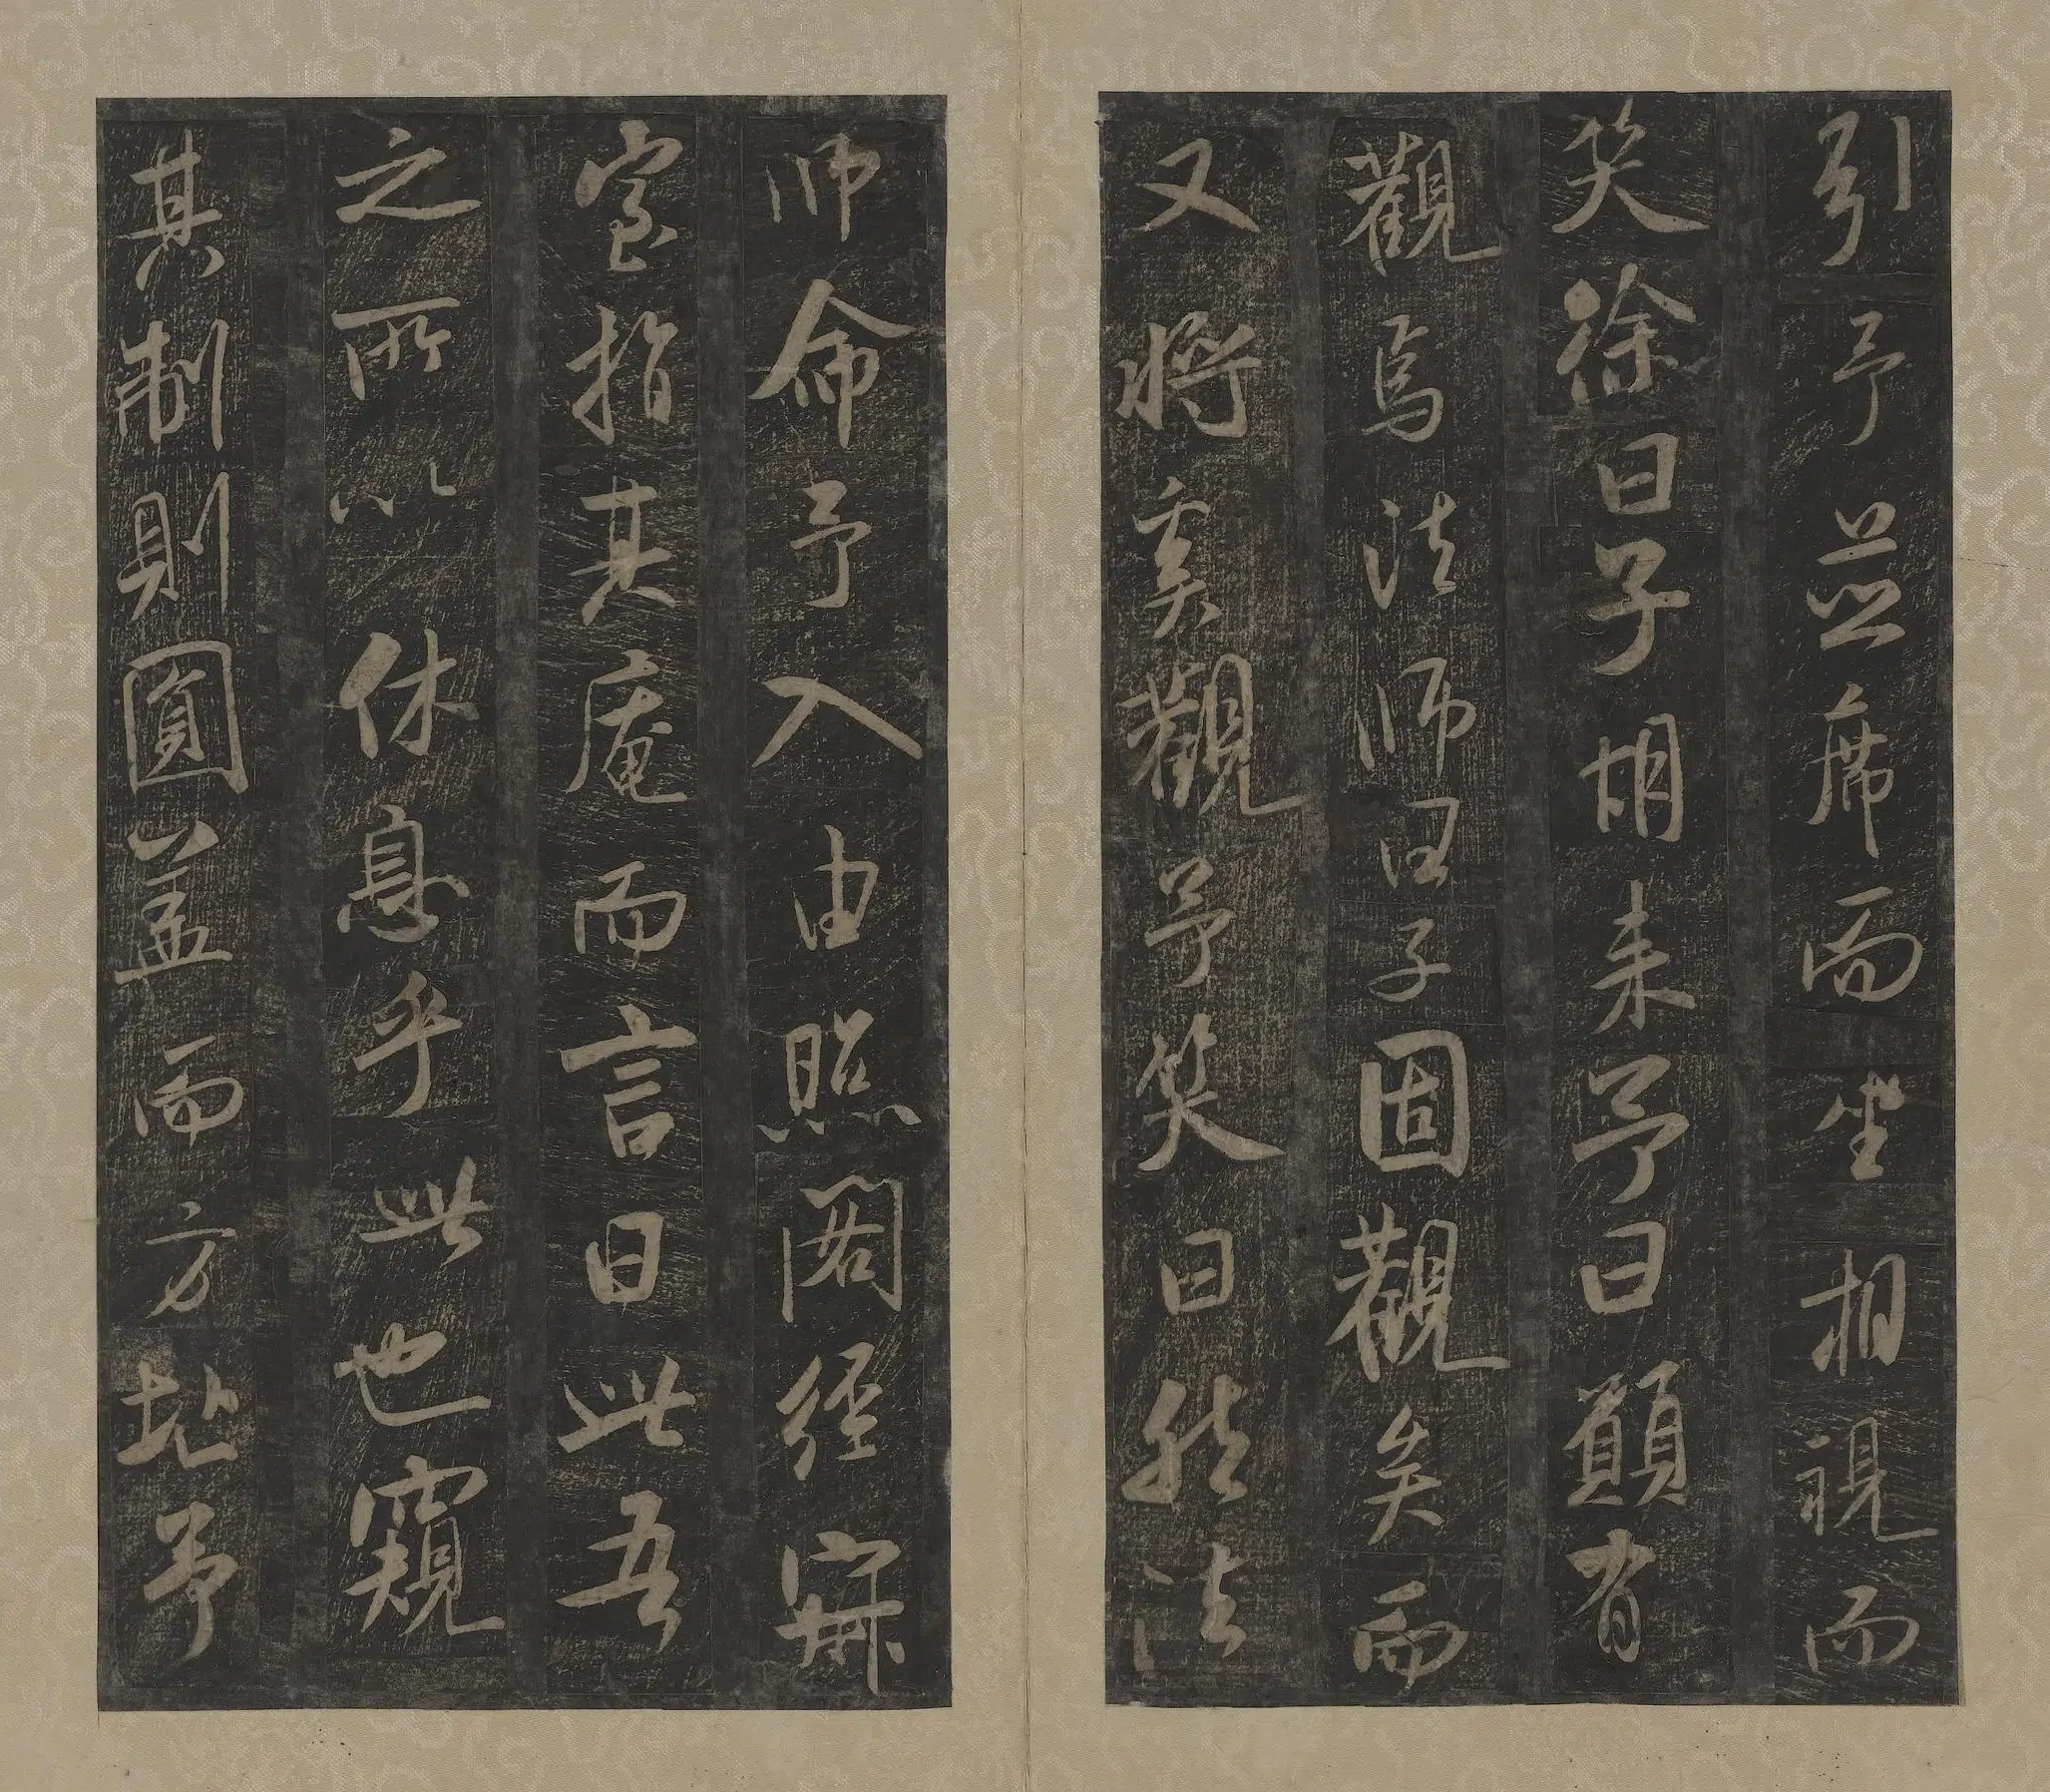 引予並席而坐相視而
笑徐曰子胡來予曰願有
觀焉法師曰子固觀矣而
又將奚觀予笑曰然法
師命予入由照閣經寂
室指其庵而言曰此吾
之所以休息乎此也窺
其制則圓蓋而方址予